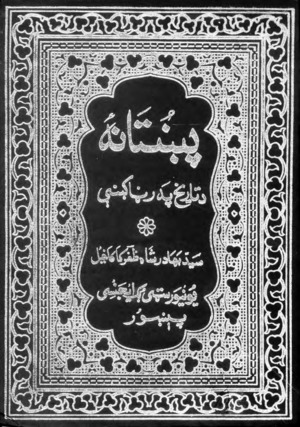 پښتانهٔ
د تاریخ په رڼا کښې
سید بهادر شاه ظفر کاکاخیل
یونیورسټي بک ایجنسي
پېښور